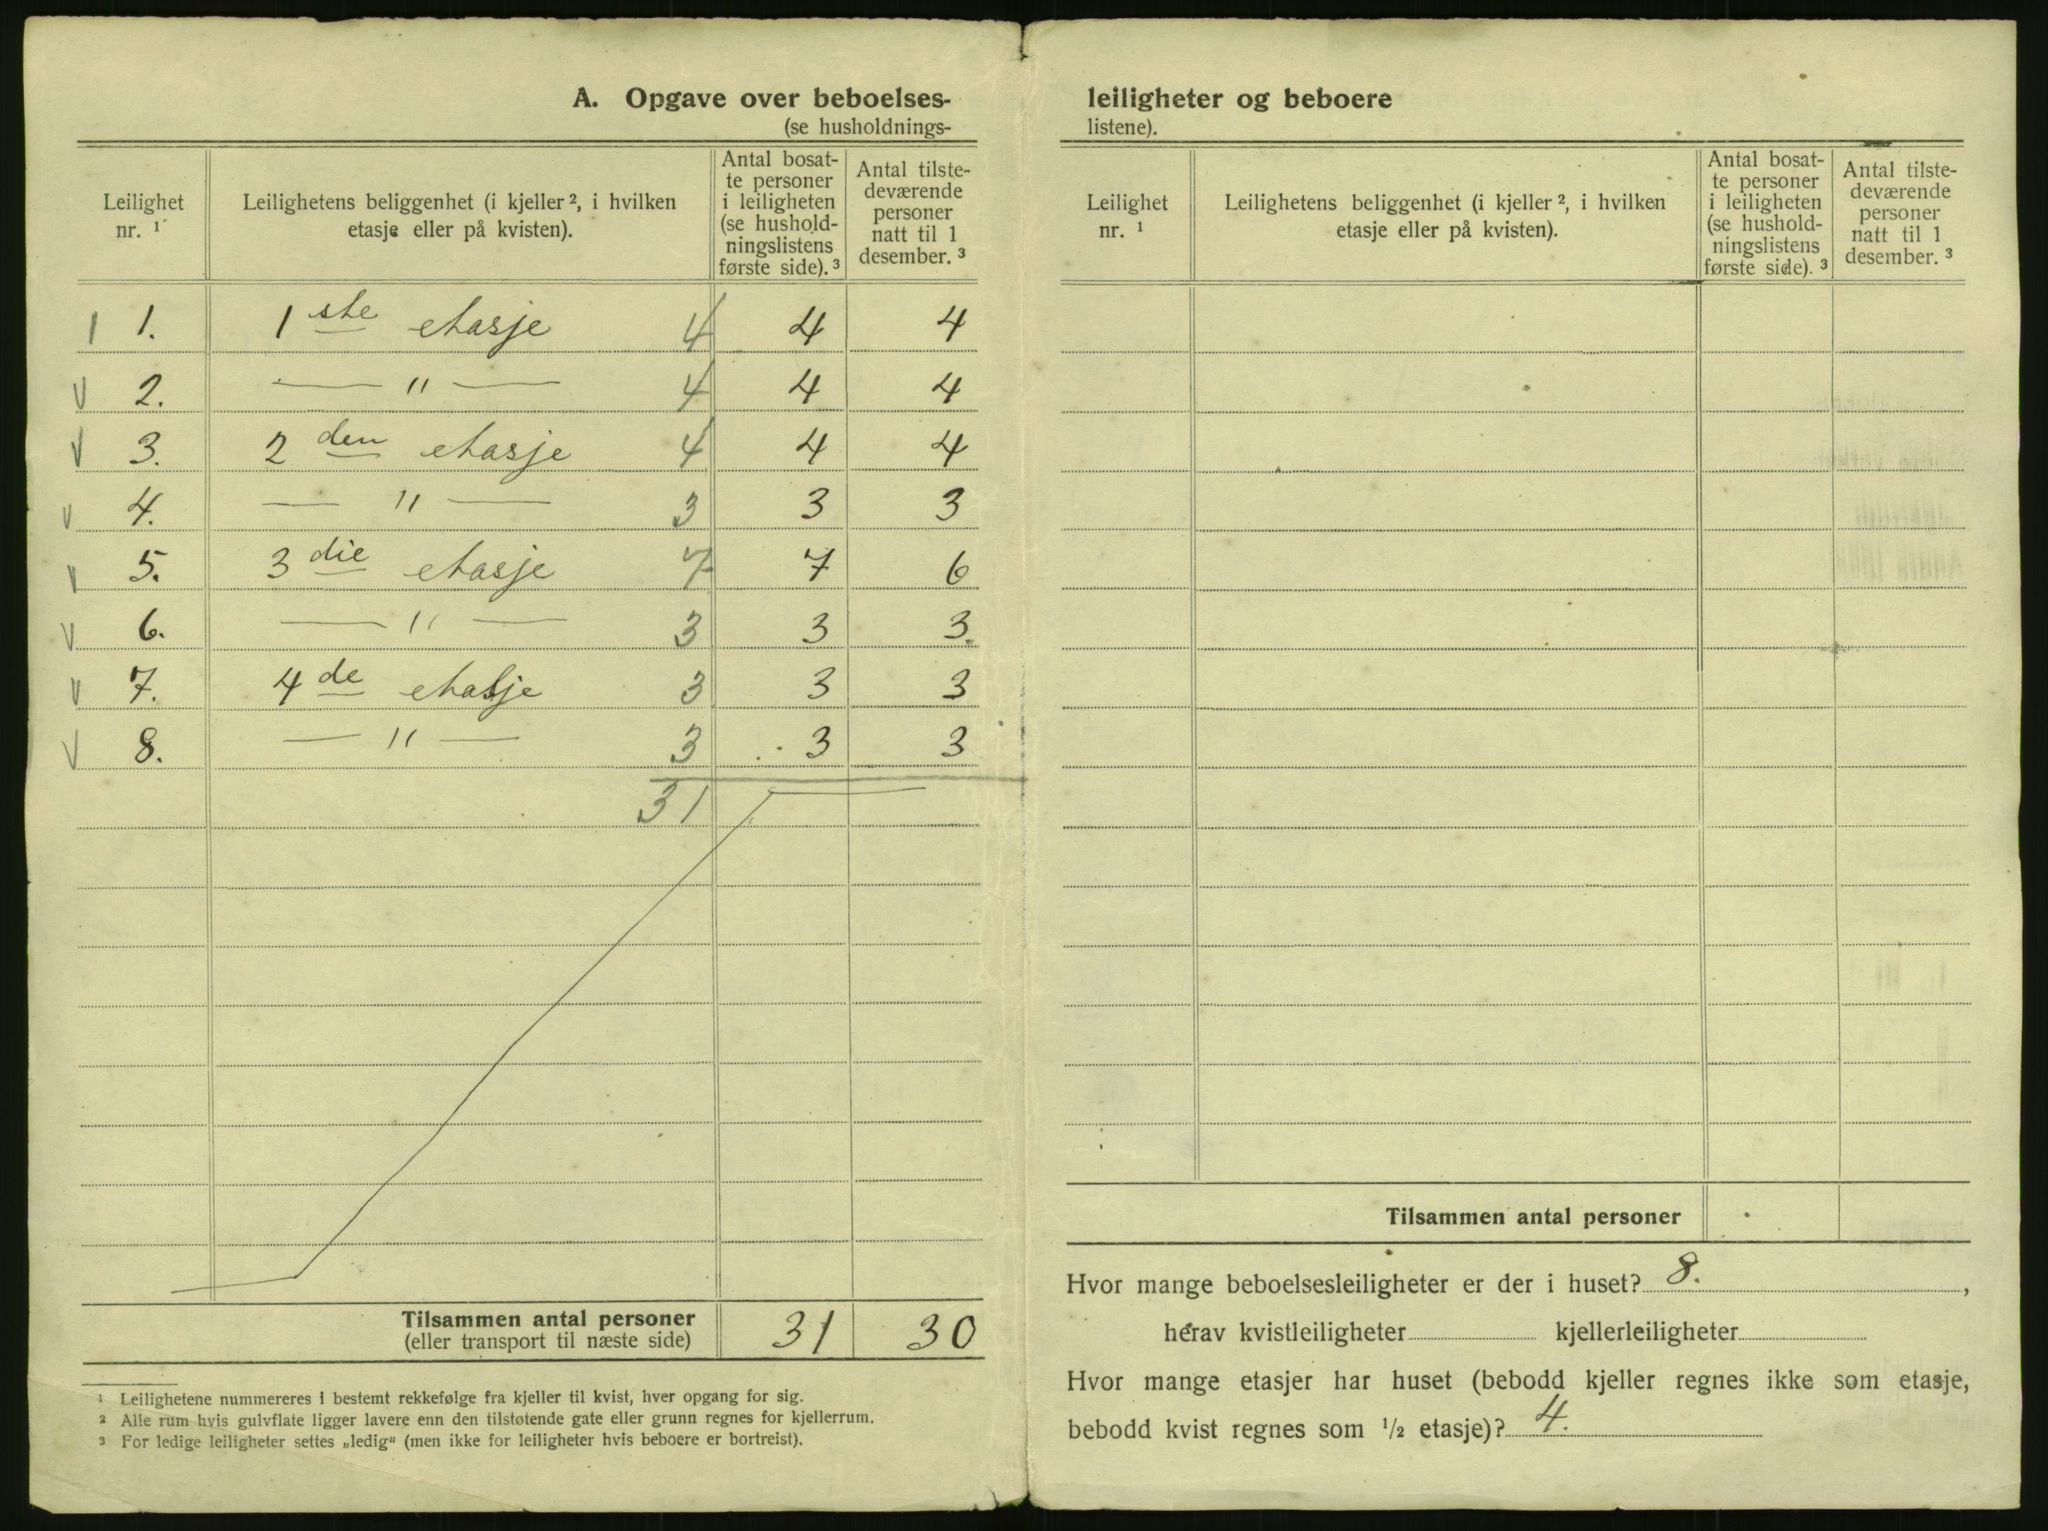 A. Opgave over beboelses-
(se husholdnings-
Leilighet nr. ¹ | Leilighetens beliggenhet (i kjeller ², i hvilken etasje eller på kvisten). | Antal bosat-te personer i leiligheten (se hushold-ningslistens første side). ³ | Antal tilste-deværende personer natt til 1 desember. ³
1. 1ste etasje 4 4 4
2. — " — 4 4 4
3. 2den etasje 4 4 4
4. — " — 3 3 3
5. 3die etasje 7 7 6
6. — " — 3 3 3.
7. 4de etasje 3 3 3
8. — " — 3 3 3
31
Tilsammen antal personer 31 30
(eller transport til næste side)
¹ Leilighetene nummereres i bestemt rekkefølge fra kjeller til kvist, hver opgang for sig.
² Alle rum hvis gulvflate ligger lavere enn den tilstøtende gate eller grunn regnes for kjellerrum.
³ For ledige leiligheter settes „ledig“ (men ikke for leiligheter hvis beboere er bortreist).
leiligheter og beboere
listene).
Leilighet nr. ¹ | Leilighetens beliggenhet (i kjeller ², i hvilken etasje eller på kvisten). | Antal bosat-te personer i leiligheten (se hushold-ningslistens første side). ³ | Antal tilste-deværende personer natt til 1 desember. ³
Tilsammen antal personer
Hvor mange beboelsesleiligheter er der i huset? 8. ,
herav kvistleiligheter kjellerleiligheter
Hvor mange etasjer har huset (bebodd kjeller regnes ikke som etasje,
bebodd kvist regnes som ½ etasje)? 4.